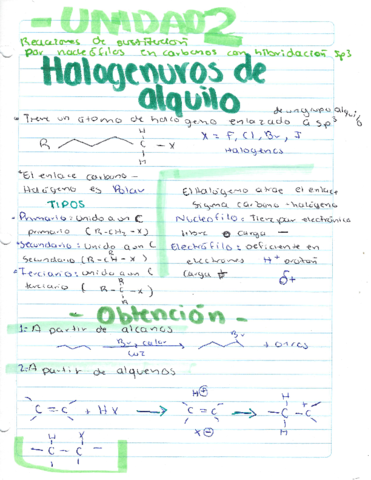 - UNIDAD 2
Reacciones de sustitución
por nucleófilos en carbonos con hibridación Sp3
Halogenuros de
alquilo
• Tiene un átomo de halógeno enlazado a sp3 de un grupo alquil
R H C – X H
X = F, Cl, Br, I
Halogenos
• El enlace carbono -
Halógeno es Polar
El Halógeno atrae el enlace
sigma carbono - halógeno
TIPOS
• Primario: unido a un C
primario (R-CH2-X)
• Secundario: Unido a un C
Secundario (R-CH-X) R
• Terciario: unido a un C
terciario (R-C-X) R R
Nucleófilo: Tiene par electrónico
libre o carga -
Electrófilo: deficiente en
electrones H+ protón
carga + δ+
- Obtención -
1.- A partir de alcanos
Br2 calor
luz
Br
+ otros
2.- A partir de alquenos
C = C + HX → H⊕ C = C X⊖ → H - C - C + H
- C - C - H X